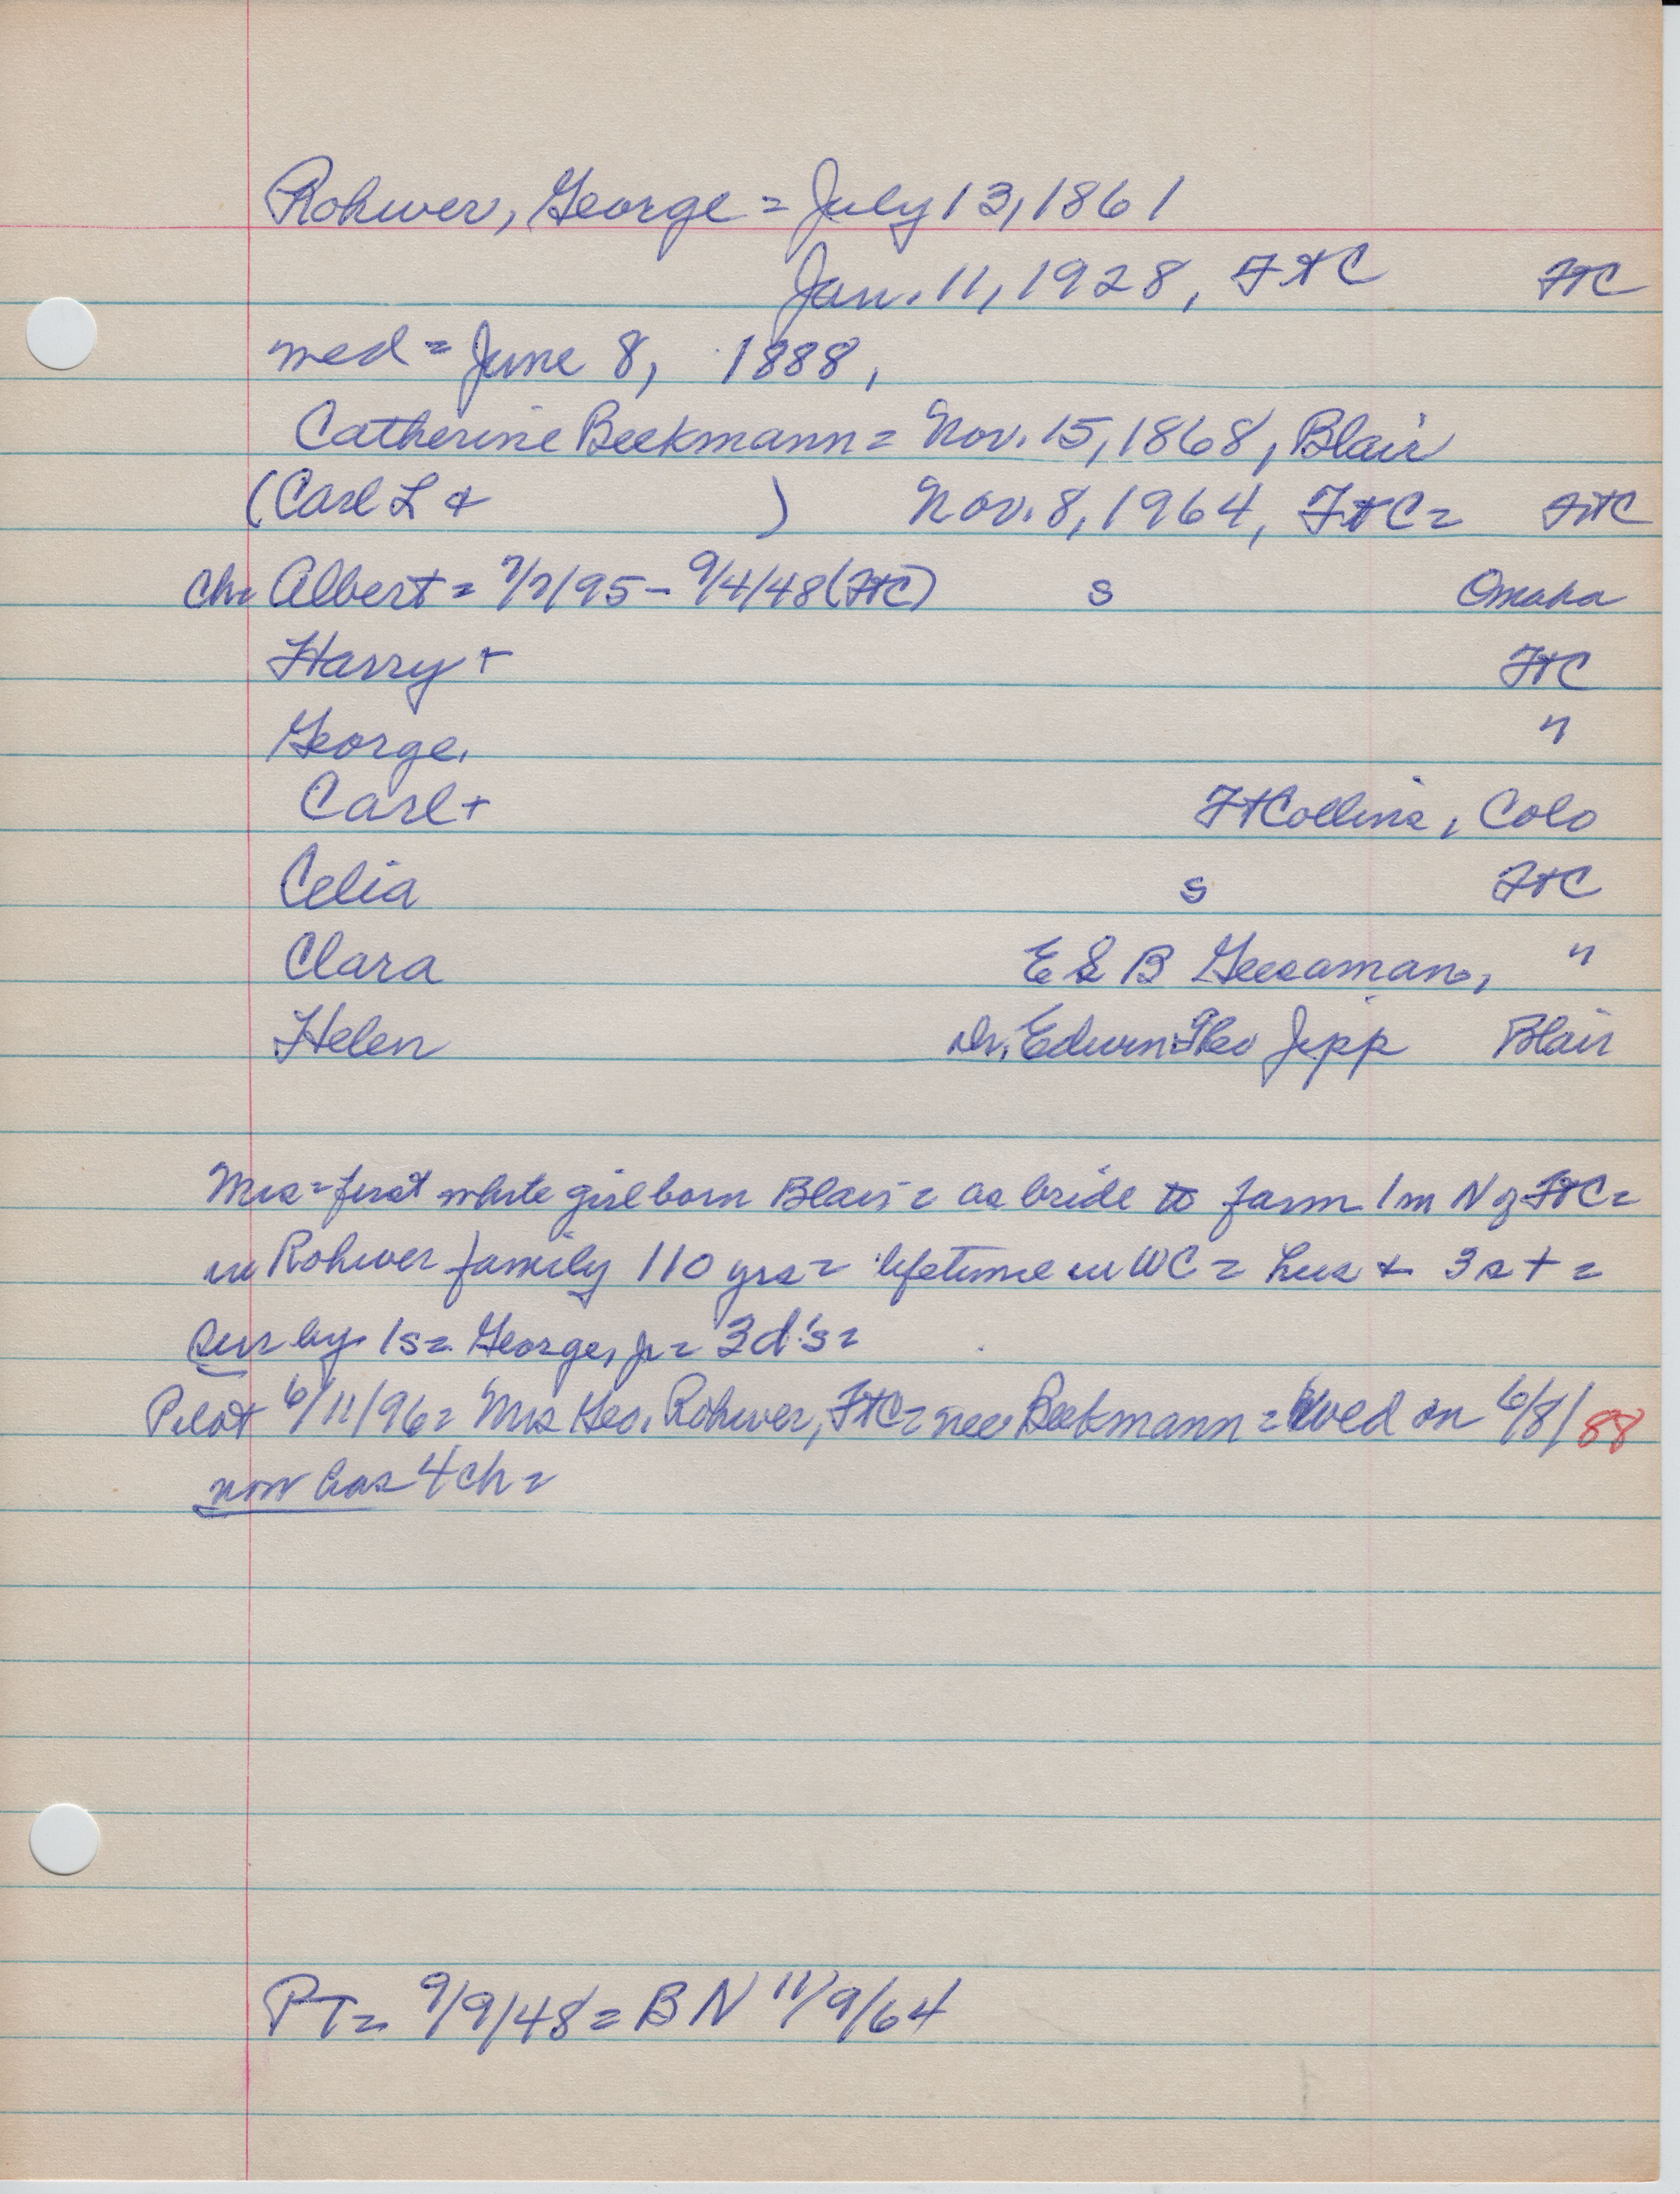 Rohwer, George = July 13, 1861
Jan. 11, 1928, FtC FtC
med = June 8, 1888,
Catherine Beekmann = Nov. 15, 1868, Blair
(Carl L & ) Nov. 8, 1964, FtC = FtC
ch = Albert = 7/7/95 - 9/4/48 (FtC) s Omaha
Harry + FtC
George, "
Carl + Ft Collins, Colo
Celia s FtC
Clara E & B Geesaman, "
Helen Dr. Edwin Jipp Blair
Mrs = first white girl born Blair = as bride to farm 1 m N of FtC =
in Rohwer family 110 yrs = lifetime in WC = hus & 3 s + =
sur by 1 s = George, Jr = 3 d's =
Pilot 6/11/96 = Mrs Geo. Rohwer, FtC = nee Beekmann = wed on 6/8/88
now has 4 ch =
PT = 9/9/48 = BN 11/9/64